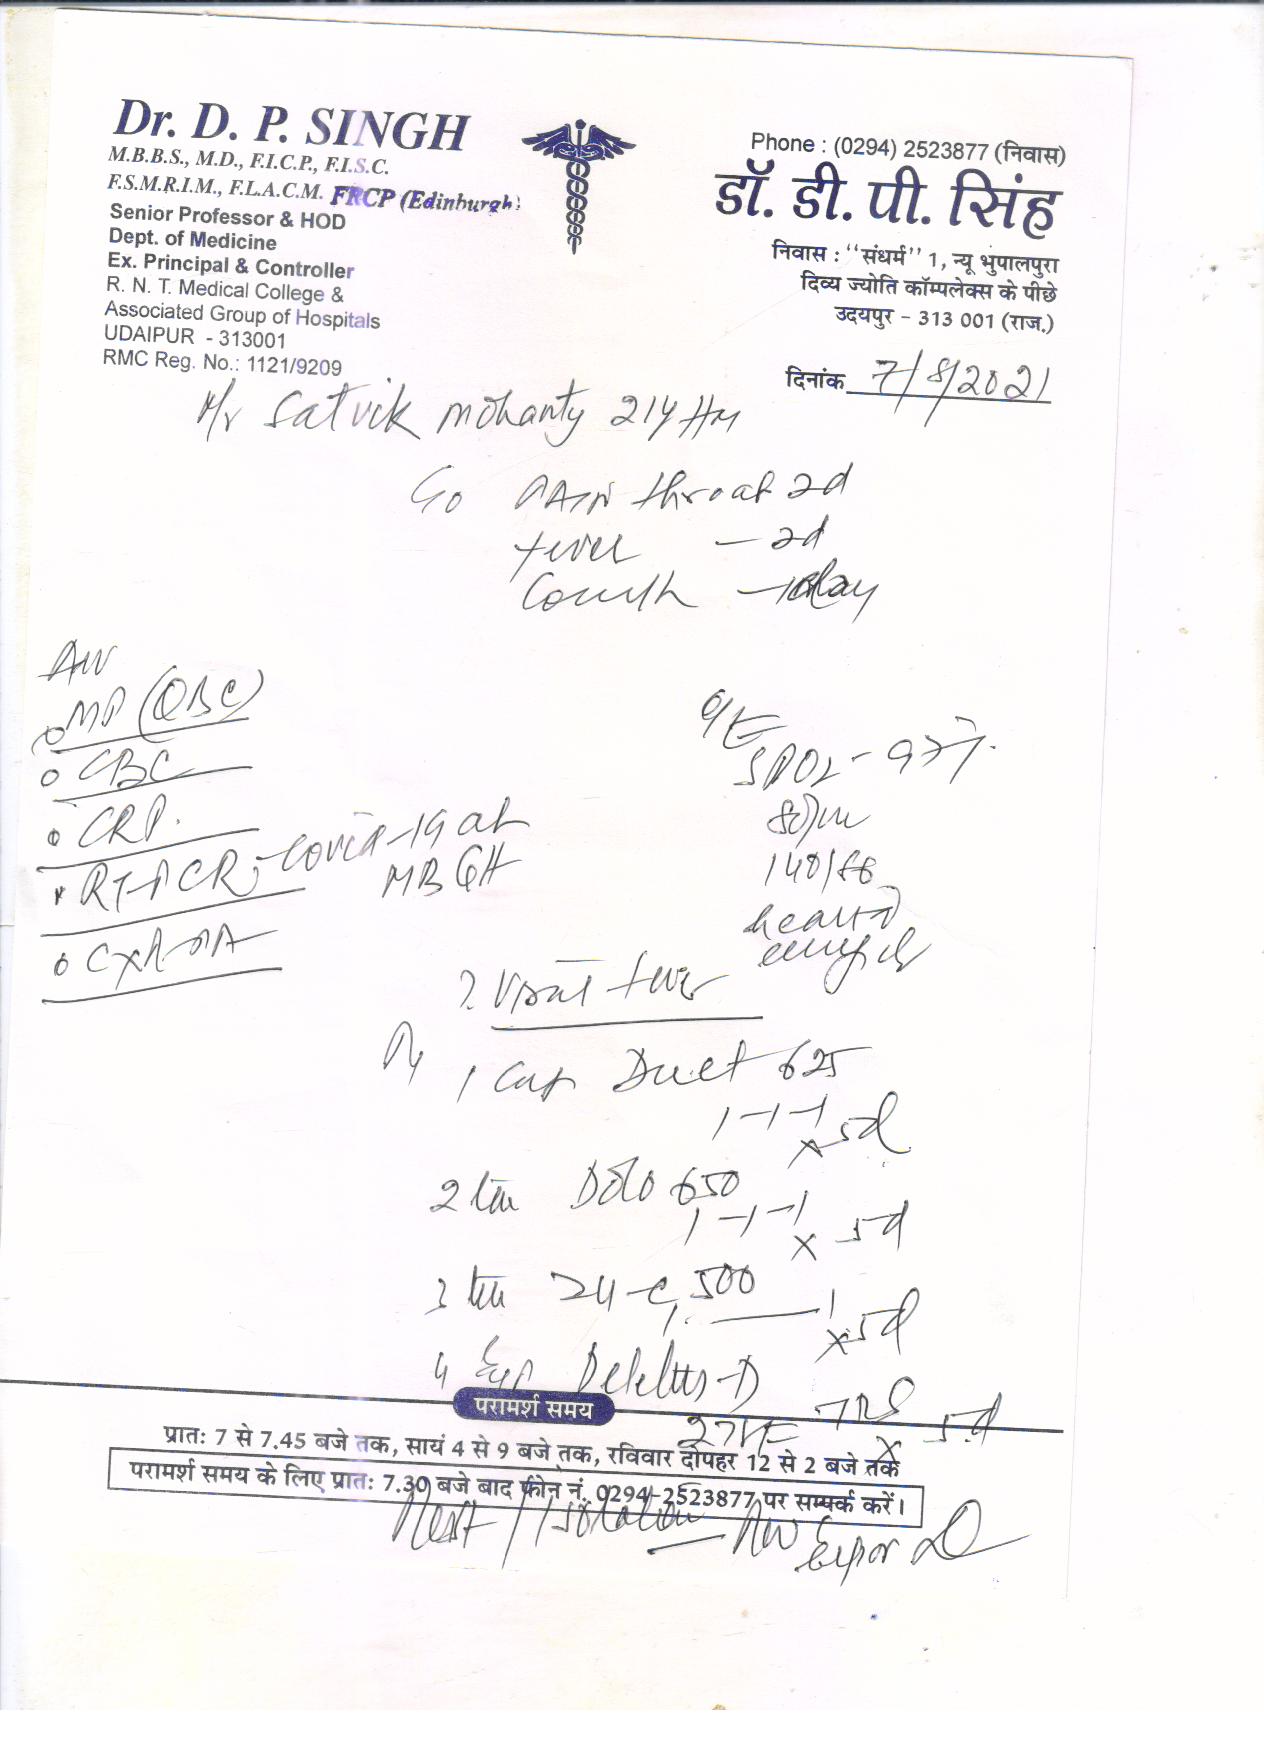 Dr. D. P. SINGH
M.B.B.S., M.D., F.I.C.P., F.I.S.C.
F.S.M.R.I.M., F.L.A.C.M. FRCP (Edinburgh)
Senior Professor & HOD
Dept. of Medicine
Ex. Principal & Controller
R. N. T. Medical College &
Associated Group of Hospitals
UDAIPUR - 313001
RMC Reg. No.: 1121/9209
Phone : (0294) 2523877 (निवास)
डॉ. डी. पी. सिंह
निवास : "संधर्म" 1, न्यू भुपालपुरा
दिव्य ज्योति कॉम्पलेक्स के पीछे
उदयपुर - 313 001 (राज.)
दिनांक 7/8/2021
Mr Satvik Mohanty 21y
C/o Pain throat 2d
fever - 2d
Cough - 1day
Adv
MP (QBC)
CBC
CRP.
RT-PCR - covid-19 at
MBGH
CXR-PA
O/E
SPO2 - 97%.
80/m
140/88
heart
? Viral fever
Rx 1 Cap 625
1-1-1
x 5d
2 tab Dolo 650
1-1-1
x 5d
3 tab 500
x 5d
4
x 5d
परामर्श समय
प्रातः 7 से 7.45 बजे तक, सायं 4 से 9 बजे तक, रविवार दोपहर 12 से 2 बजे तक
परामर्श समय के लिए प्रातः 7.30 बजे बाद फोन नं. 0294-2523877 पर सम्पर्क करें।
Rest / Isolation